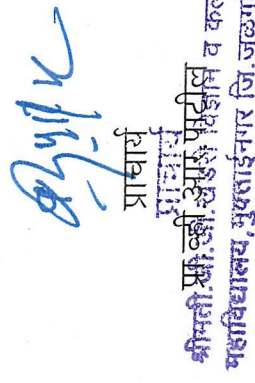 प्राचार्य
प्राचार्य
प्रा व्ही आर पाटील
श्रीमती.जी.जी.खडसे विज्ञान व कल
महाविद्यालय,मुक्ताईनगर जि.जळग